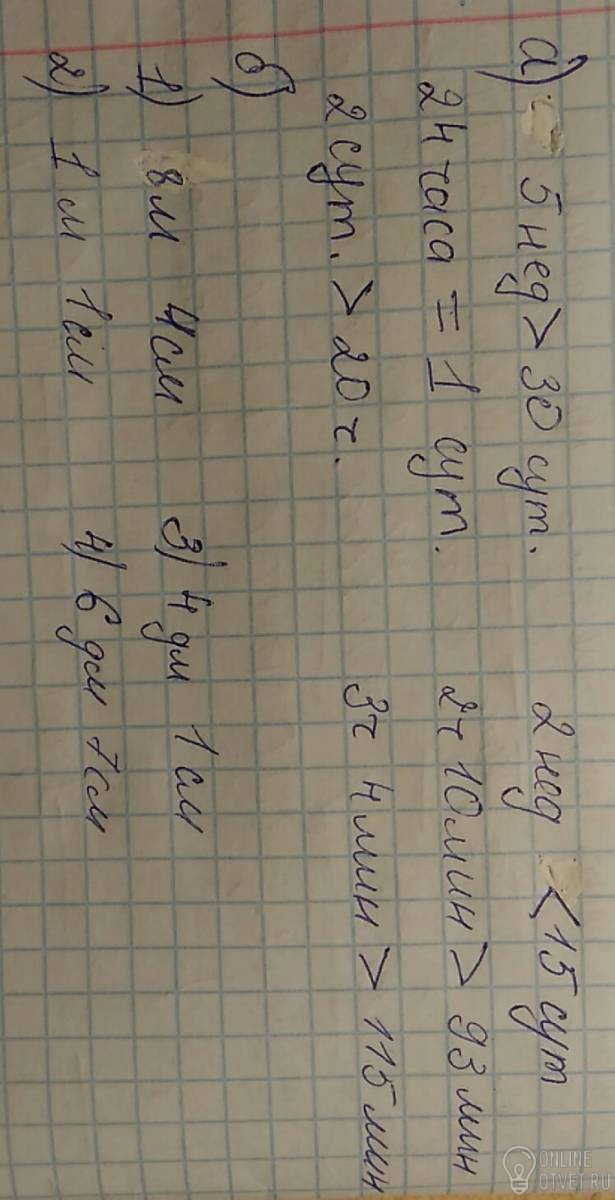 а) 5 нед > 30 сут. 2 нед < 15 сут
24 часа = 1 сут. 2ч 10мин > 93 мин
2 сут. > 20 ч. 3ч 4мин > 115 мин
б)
1) 8м 4см 3) 4 дм 1 см
2) 1 м 1 см 4) 6 дм 7см
ONLINE
OTVET.RU